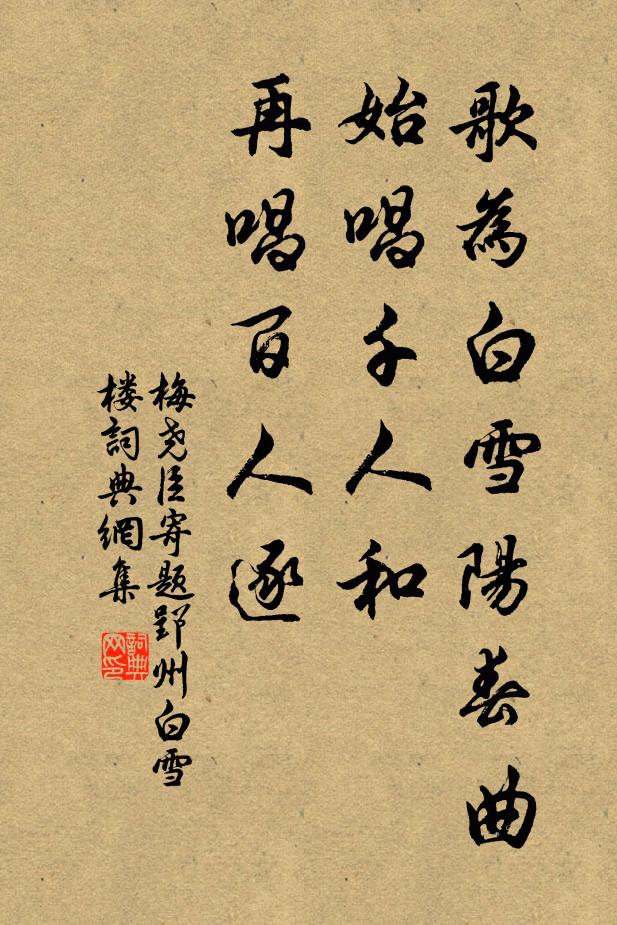 歌為白雪陽春曲
始唱千人和
再唱百人逐
梅尧臣寄题郢州白雪
楼詞典網集
詞典网印